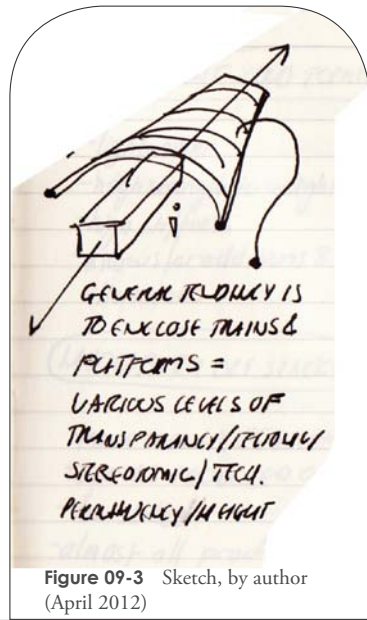 GENERAL TENDENCY IS
TO ENCLOSE TRAINS &
PLATFORMS =
VARIOUS LEVELS OF
TRANSPARANCY/TECTONIC/
STEREOTOMIC/TECH.
/HEIGHT
Figure 09-3 Sketch, by author
(April 2012)